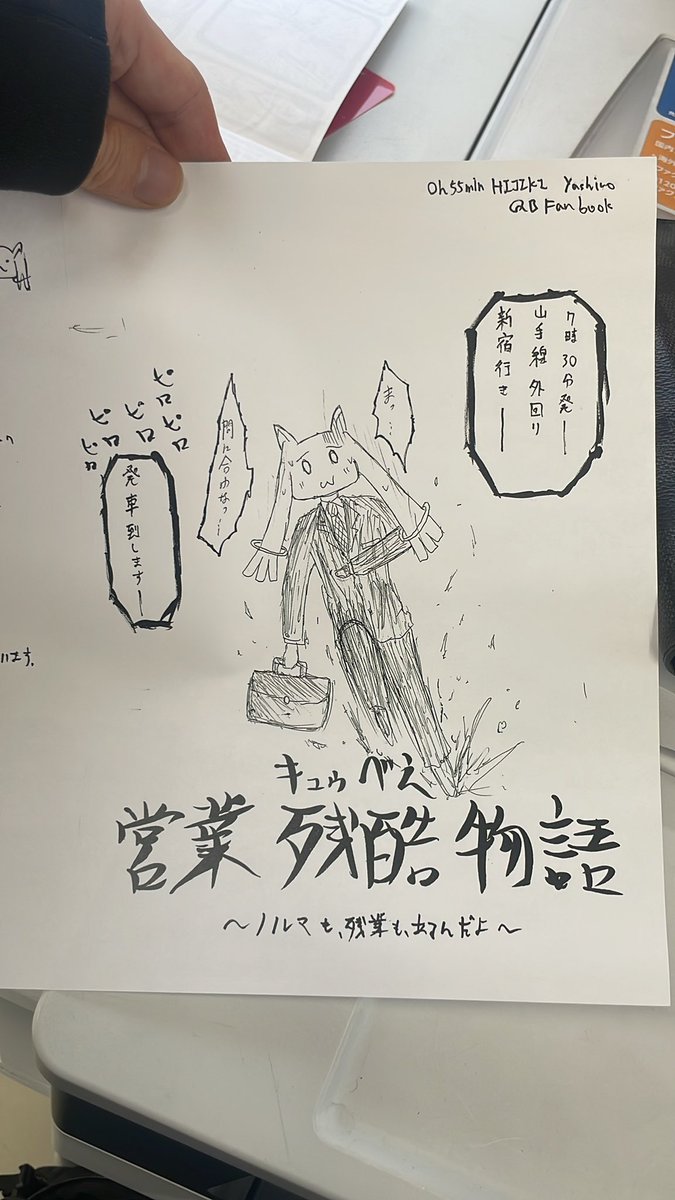 0h55min HIJIKI Yashiro
QB Fan book
7時30分発ー
山手線 外回り
新宿行きー
まっ…
間に合ゎなっ…
ピロ
ピロ
ピロ
ピロ
ピロ
発車到しますー
キュゥべえ
営業残酷物語
〜ノルマも、残業も、あるんだよ〜
います。
フ
国内
海外
ファク
0120
ファク